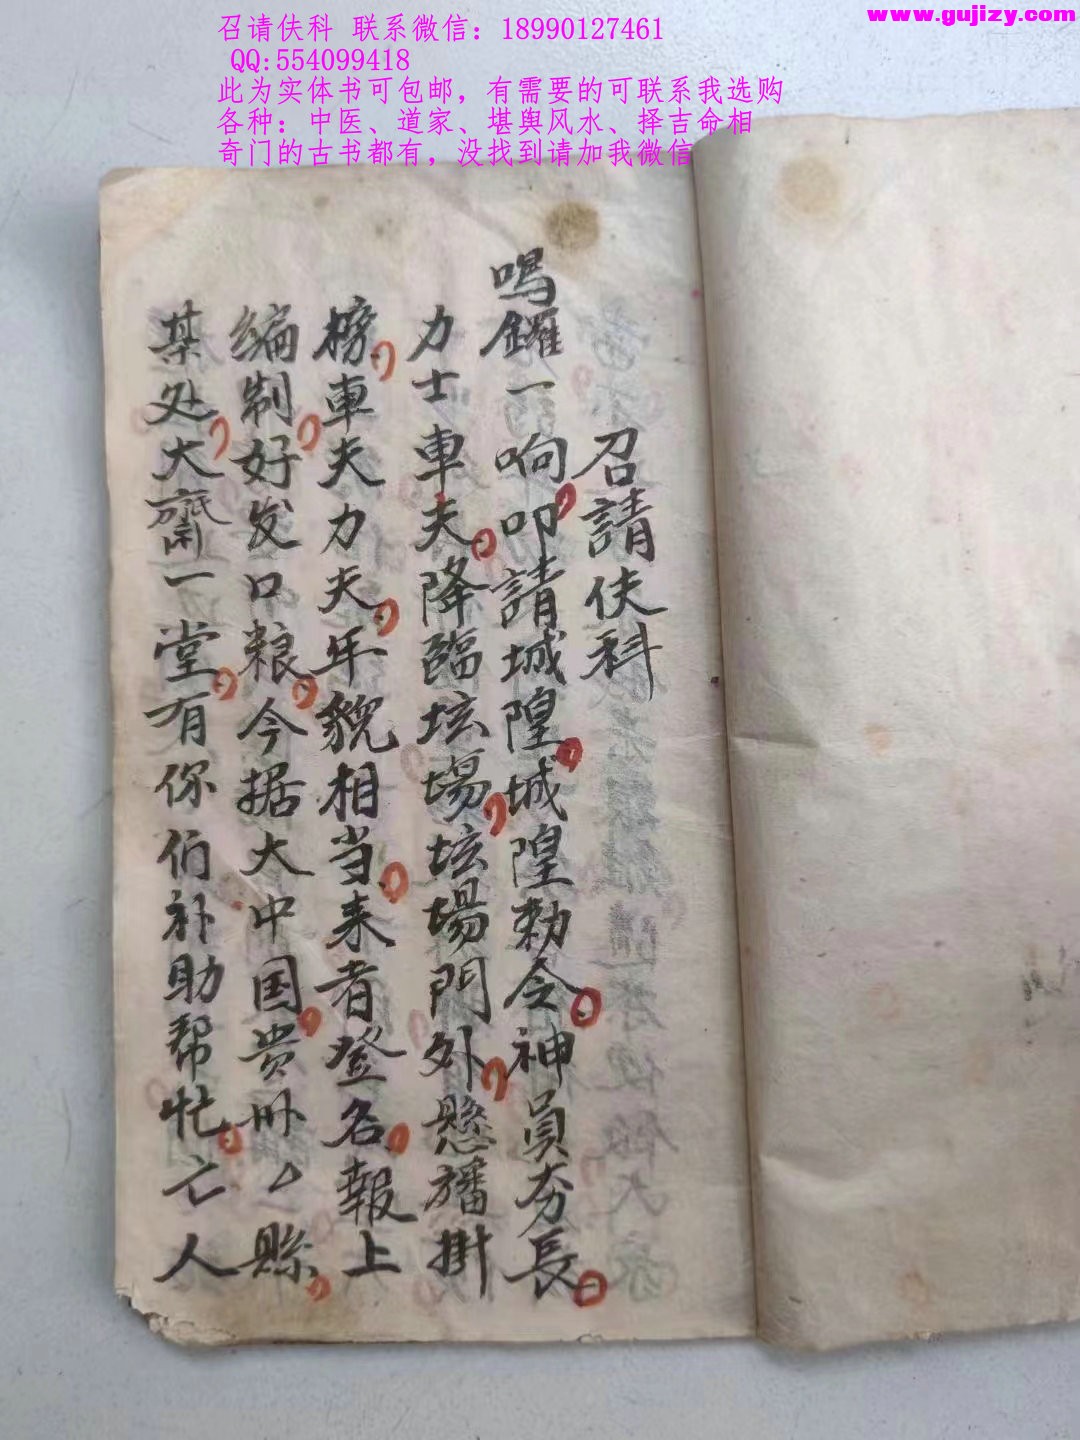 召请伕科 联系微信：18990127461
QQ:554099418
此为实体书可包邮，有需要的可联系我选购
各种：中医、道家、堪舆风水、择吉命相
奇门的古书都有，没找到请加我微信
www.gujizy.com
召請伕科
鳴鑼一响叩請城隍城隍勅令神員夯長
力士車夫降臨坛場坛場門外懸旛掛
榜車夫力夫年貌相当来者登名報上
编制好发口粮今据大中国贵州厶縣
某处大齋一堂有你们补助帮忙亡人